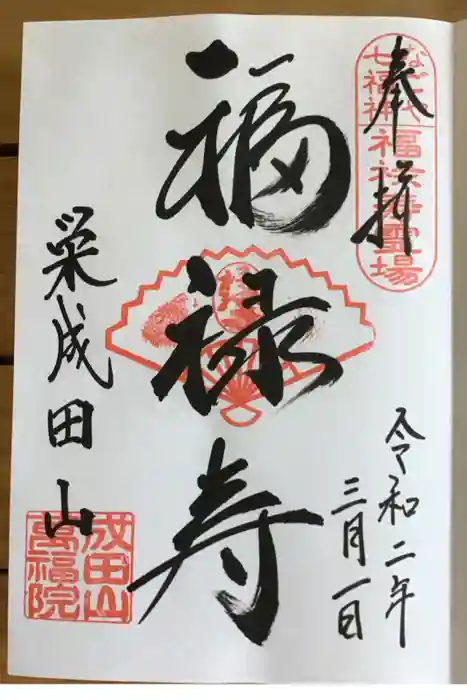 奉拝
なごや
七福神
福禄寿霊場
福禄寿
令和二年
三月一日
栄成田山
成田山
萬福院